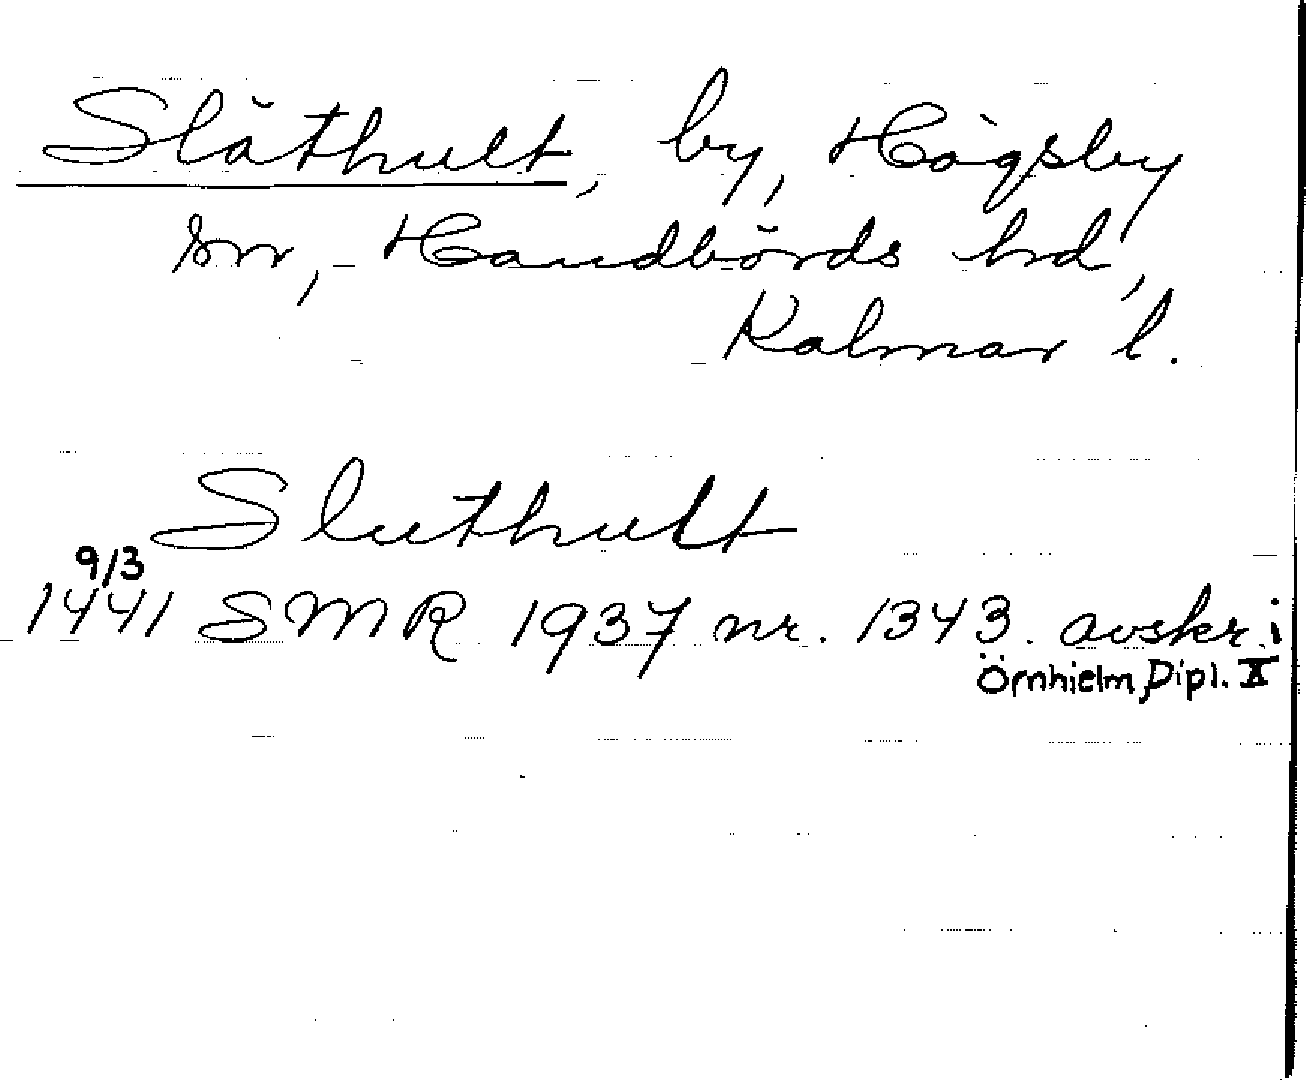 Slåthult, by, Högsby
sn, Handbörds hd,
Kalmar l.
Sluthult
9/3
1441 SMR 1937 nr. 1343. avskr. i
Örnhielm, Dipl. II